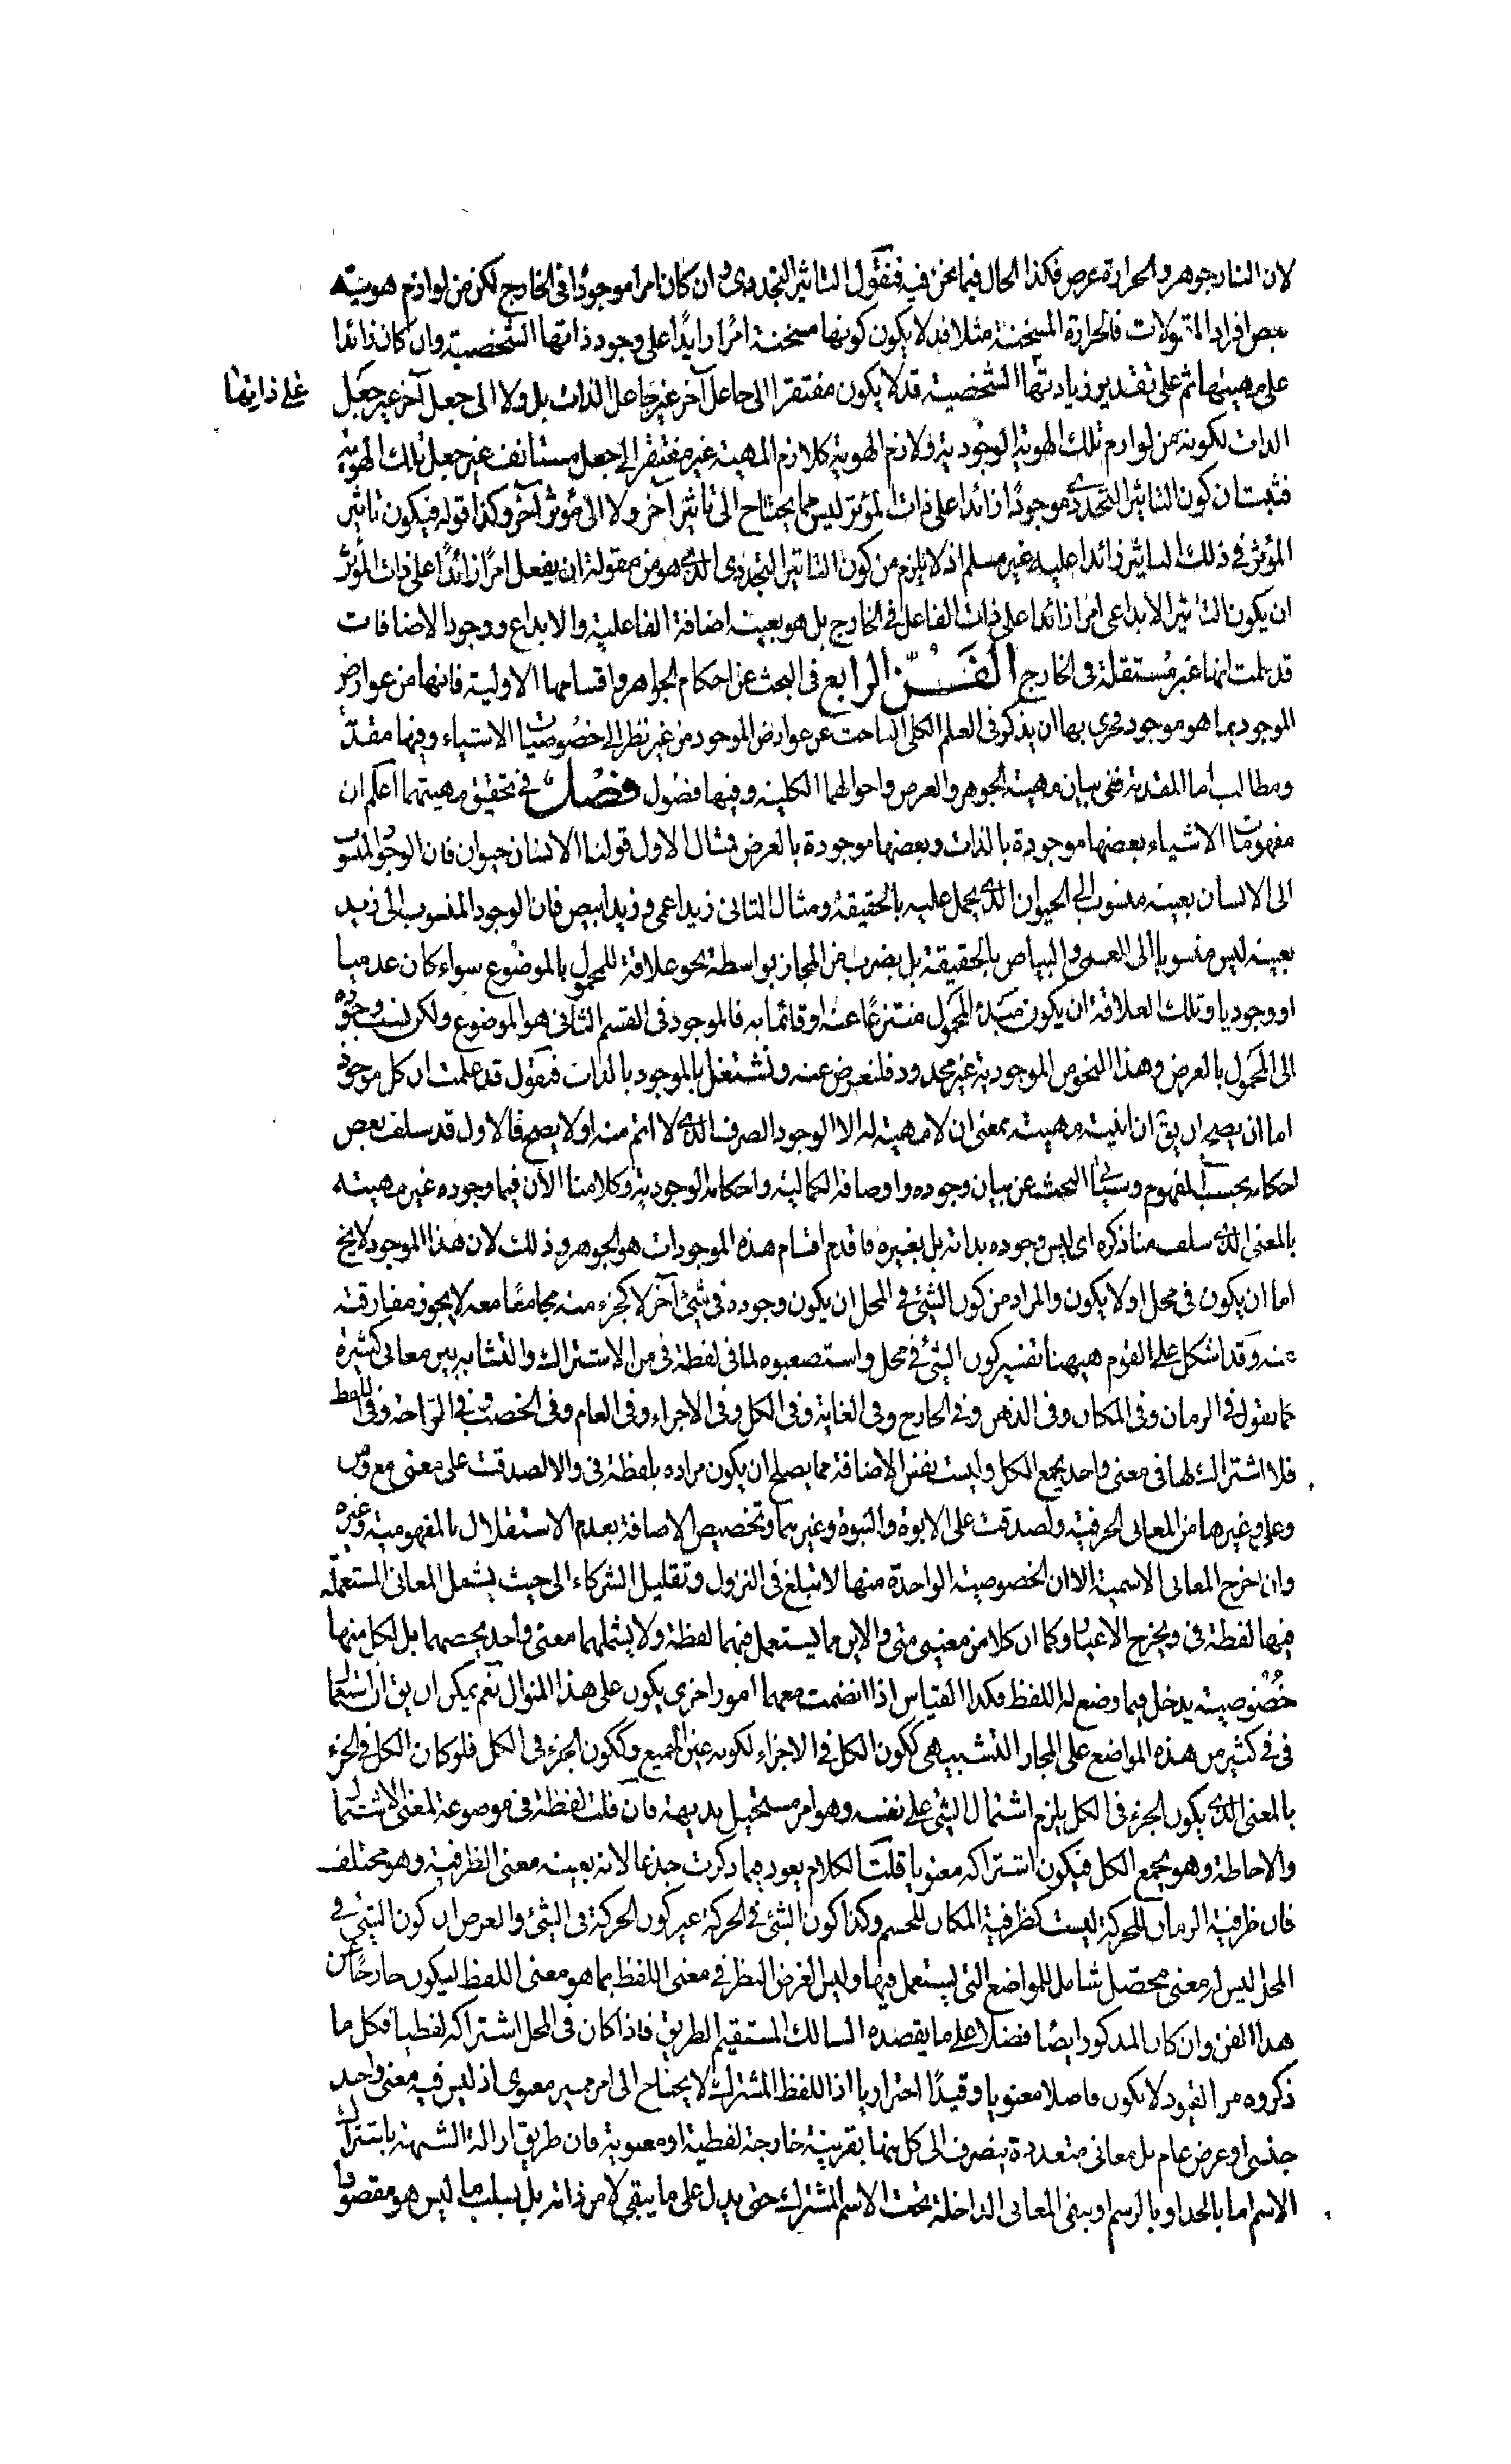 لان النار جوهر والحرارة عرض فكذا الحال فيما نحن فيه فنقول التاثير التجددى وان كان امرا موجودا فى الخارج لكن من لوازم هوية
بعض افراد المقولات فالحرارة المسخنة مثلا قد لا يكون كونها مسخنة امرًا زايدًا على وجود ذاتها الشخصية وان كان زائدا
على مهيتها ثم على تقدير زيادتها الشخصية قد لا يكون مفتقرا الى جاعل آخر غير جاعل الذات بل ولا الى جعل آخر غير جعل
على ذاتها
الذات لكونه من لوازم تلك الهوية الوجودية ولازم الهوية كلازم المهية غير مفتقر الى جعل مستانف غير جعل تلك الهوية
فثبت ان كون التاثير التجددى موجودًا زائدا على ذات المؤثر ليس مما يحتاج الى تاثير آخر ولا الى مؤثر آخر وكذا قوله فيكون تاثير
المؤثر فى ذلك التاثير زائدا عليه غير مسلم اذ لا يلزم من كون التاثير التجددى الذى هو من مقولة ان يفعل امرًا زائدًا على ذات المؤثر
ان يكون التاثير الابداعى امرا زائدا على ذات الفاعل فى الخارج بل هو بعينه اضافة الفاعلية والابداع ووجود الاضافات
قد علمت انها غير مستقلة فى الخارج الفــن الرابع فى البحث عن احكام الجواهر واقسامها الاولية فانها من عوارض
الموجود بما هو موجود فحرى بها ان يذكر فى العلم الكلى الباحث عن عوارض الموجود من غير نظر الى خصوصيات الاشياء وفيها مقدمة
ومطالب اما المقدمة ففى بيان مهية الجوهر والعرض واحوالهما الكلية وفيها فصول فصل فى تحقيق مهيتهما اعلم ان
مفهومات الاشياء بعضها موجودة بالذات وبعضها موجودة بالعرض مثال الاول قولنا الانسان حيوان فان الوجود المنسوب
الى الانسان بعينه منسوب الى الحيوان الذى يحمل عليه بالحقيقة ومثال الثانى زيد اعمى وزيد ابيض فان الوجود المنسوب الى زيد
بعينه ليس منسوبا الى العمى والبياض بالحقيقة بل بضرب من المجاز بواسطة نحو علاقة للمحمول بالموضوع سواء كان عدميا
او وجوديا وتلك العلاقة ان يكون مبدء المحمول منتزعًا عنه او قائما به فالموجود فى القسم الثانى هو الموضوع ولكن نسب وجوده
الى المحمول بالعرض وهذا النحو من الموجودية غير محدود فلنعرض عنه ونشتغل بالموجود بالذات فنقول قد علمت ان كل موجود
اما ان يصح ان يق ان انيته مهيته بمعنى ان لا مهية له الا الوجود الصرف الذى لا اتم منه او لا يصح فالاول قد سلف بعض
احكامه بحسب المفهوم وسيأتى البحث عن بيان وجوده واوصافه الكمالية واحكامه الوجودية وكلامنا الآن فيما وجوده غير مهيته
بالمعنى الذى سلف منا ذكره اى ليس وجوده بذاته بل بغيره فاقدم اقسام هذه الموجودات هو الجوهر وذلك لان هذا الموجود لا يخ
اما ان يكون فى محل او لا يكون والمراد من كون الشئ فى المحل ان يكون وجوده فى شئ آخر لا كجزء منه مجامعًا معه لا يجوز مفارقته
عنه وقد اشكل على القوم هيهنا تفسير كون الشئ فى محل واستصعبوه لما فى لفظة فى من الاشتراك والتشابه بين معانى كثيرة
كما نقول فى الزمان وفى المكان وفى الذهن وفى الخارج وفى الغاية وفى الكل وفى الاجزاء وفى العام وفى الخصب وفى الراحة وفى اللفظ
فلا اشتراك لها فى معنى واحد يجمع الكل وليست نفس الاضافة مما يصلح ان يكون مراده بلفظة فى والا لصدقت على معنى مع ومن
وعلى وغيرها من المعانى الحرفية ولصدقت على الابوة والنبوة وغيرهما وتخصيص الاضافة بعدم الاستقلال بالمفهومية وغيره
وان اخرج المعانى الاسمية الا ان الخصوصية الواحدة منها لا تبلغ فى النزول وتقليل الشركاء الى حيث يشمل المعانى المستعملة
فيها لفظة فى ويخرج الاغيار وكما ان كلا من معنيى متى والاين مما يستعمل فيهما لفظة ولا يشملهما معنى واحد يخصهما بل لكل منها
خصوصية يدخل فيما وضع له اللفظ فكذا القياس اذا انضمت معهما امور اخرى يكون على هذا المنوال نعم يمكن ان يق ان استعمال
فى فى كثير من هذه المواضع على المجاز التشبيهى ككون الكل فى الاجزاء لكونه عين الجميع وككون الجزء فى الكل فلو كان الكل فى الجزء
بالمعنى الذى يكون الجزء فى الكل يلزم اشتمال الشئ على نفسه وهو امر مستحيل بديهة فان قلت لفظة فى موضوعة لمعنى الاشتمال
والاحاطة وهو يجمع الكل فيكون اشتراكه معنويا قلت الكلام يعود فيما ذكرت جذعا لانه بعينه معنى الظرفية وهو مختلف
فان ظرفية الزمان للحركة ليست كظرفية المكان للجسم وكذا كون الشئ فى الحركة غير كون الحركة فى الشئ والغرض ان كون الشئ فى
المحل ليس له معنى محصّل شامل للمواضع التى يستعمل فيها وليس الغرض النظر فى معنى اللفظ بما هو معنى اللفظ ليكون خارجًا عن
هذا الفن وان كان المذكور ايضًا فضلا على ما يقصده السالك المستقيم الطريق فاذا كان فى المحل اشتراكه لفظيا فكل ما
ذكروه من القيود لا يكون فاصلا معنويا وقيدًا احترازيا اذ اللفظ المشترك لا يحتاج الى امر مميز معنوى اذ ليس فيه معنى واحد
جنسى او عرض عام بل معانى متعددة ينصرف الى كل منها بقرينة خارجة لفظية او معنوية فان طريق ازالة الشبهة باشتراك
الاسم اما بالحد او بالرسم او بنفى المعانى الداخلة تحت الاسم المشترك حتى يدل على ما يبقى لا من ذاته بل بسلب ما ليس هو مقصودا